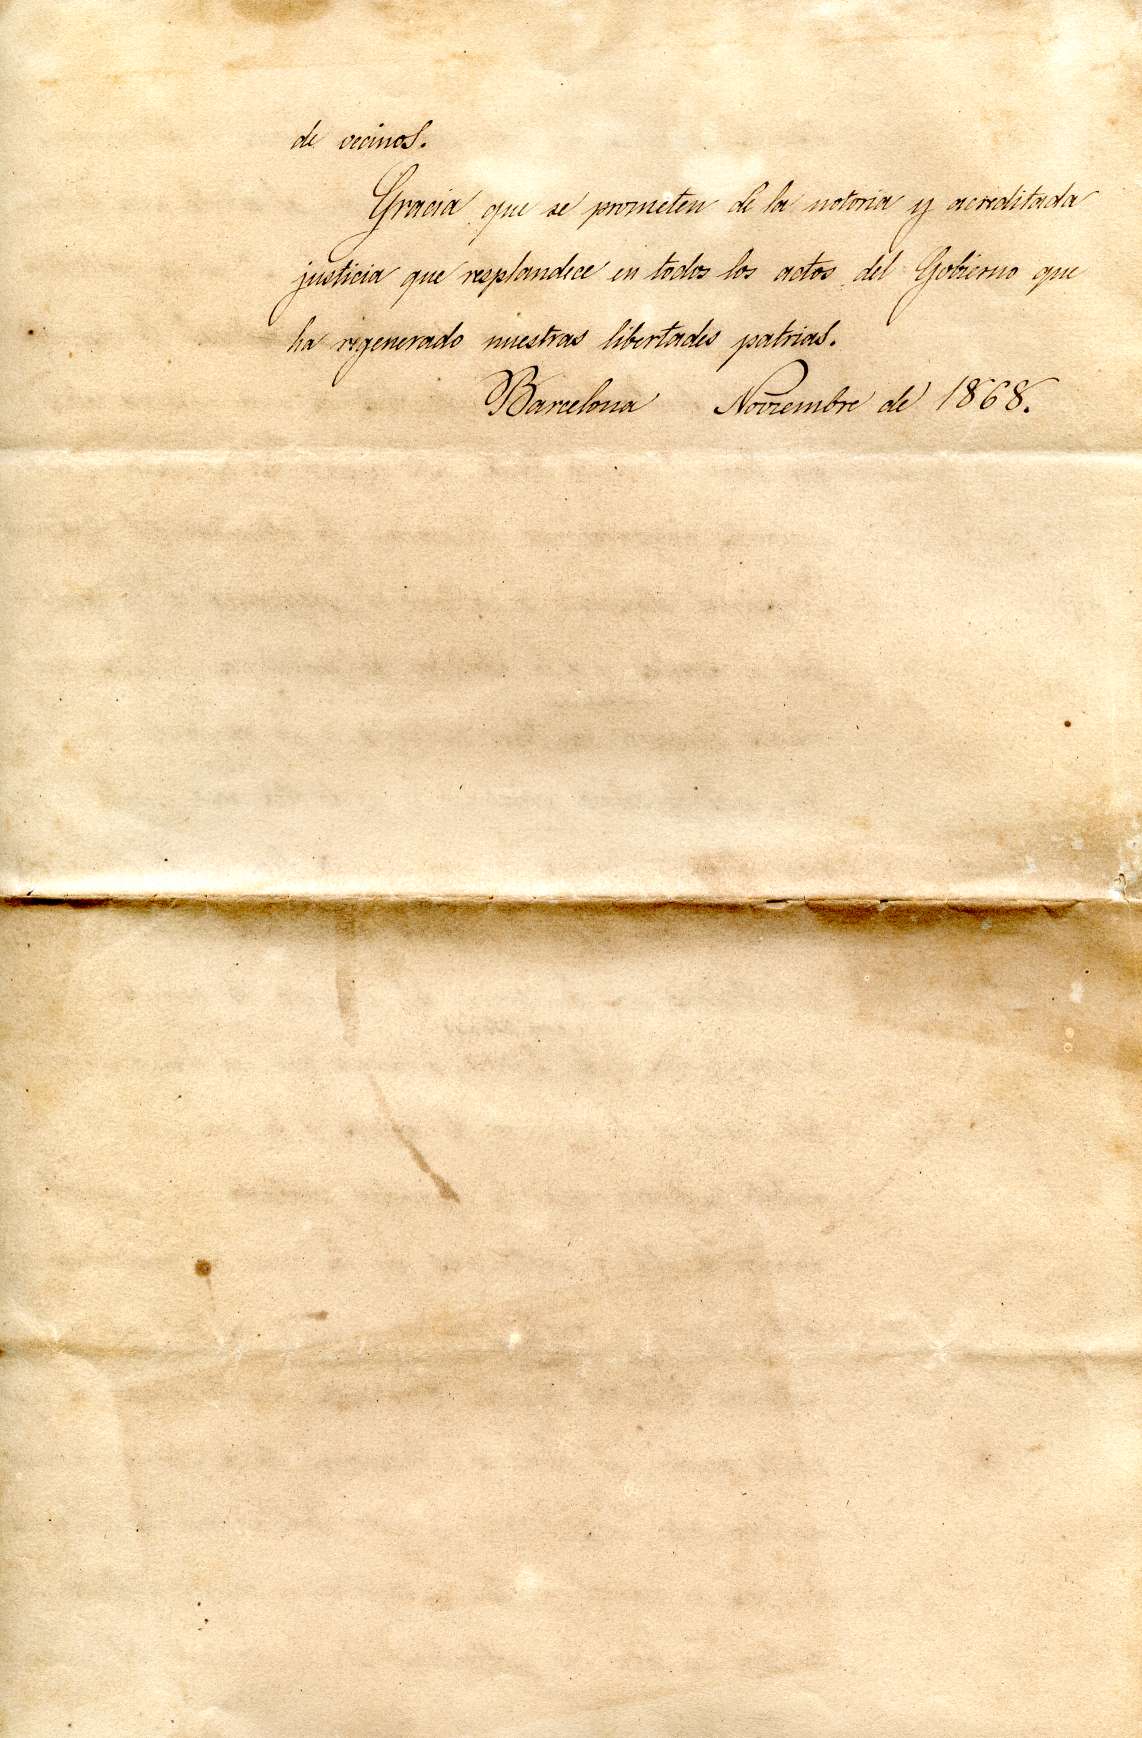 de vecinos.
Gracia que se prometen de la notoria y acreditada
justicia que resplandece en todos los actos del Gobierno que
ha regenerado nuestras libertades patrias.
Barcelona Noviembre de 1868.